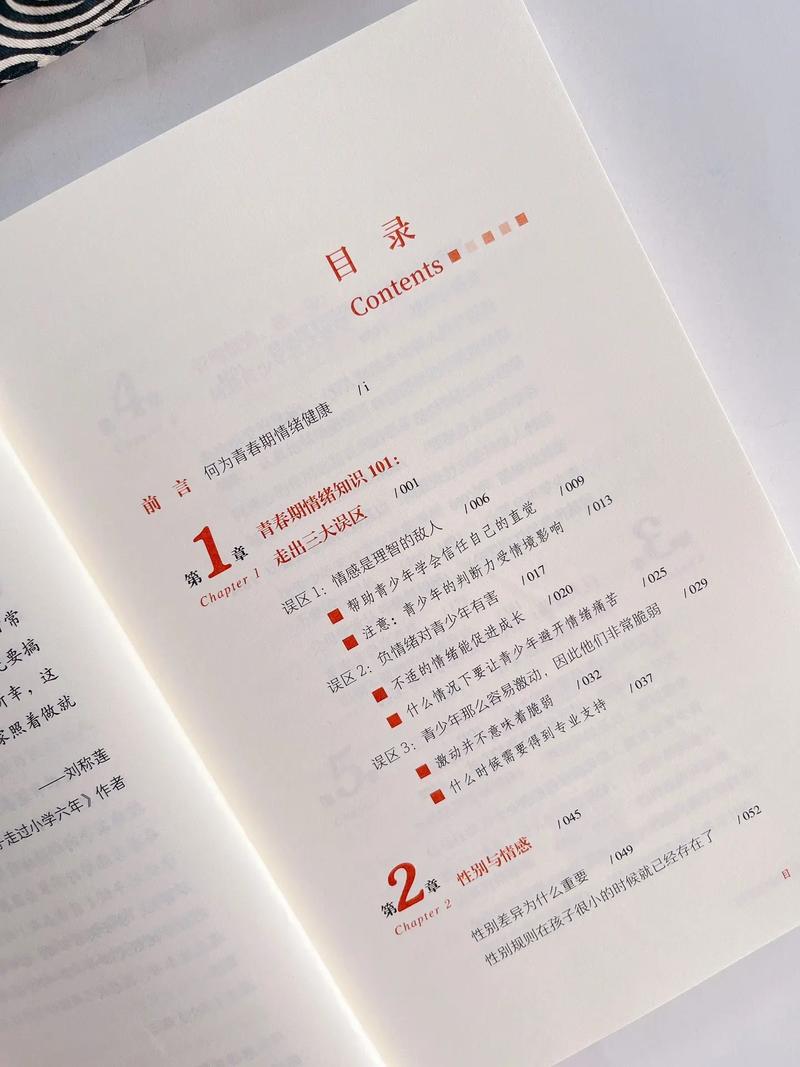 常
要搞
幸，这
家照着做就
——刘称莲
走过小学六年》作者
目 录
Contents
前 言 何为青春期情绪健康 / i
第1章 青春期情绪知识 101：
Chapter 1 走出三大误区 / 001
误区 1：情感是理智的敌人 / 006
帮助青少年学会信任自己的直觉 / 009
注意：青少年的判断力受情境影响 / 013
误区 2：负情绪对青少年有害 / 017
不适的情绪能促进成长 / 020
什么情况下要让青少年避开情绪痛苦 / 025
误区 3：青少年那么容易激动，因此他们非常脆弱 / 029
激动并不意味着脆弱 / 032
什么时候需要得到专业支持 / 037
第2章 性别与情感 / 045
Chapter 2
性别差异为什么重要 / 049
性别规则在孩子很小的时候就已经存在了 / 052
目